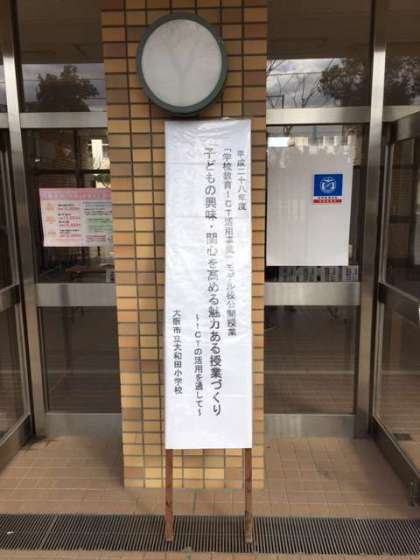 平成二十八年度
「学校教育ICT活用事業」モデル校公開授業
子どもの興味・関心を高める魅力ある授業づくり
～ICTの活用を通して～
大阪市立大和田小学校